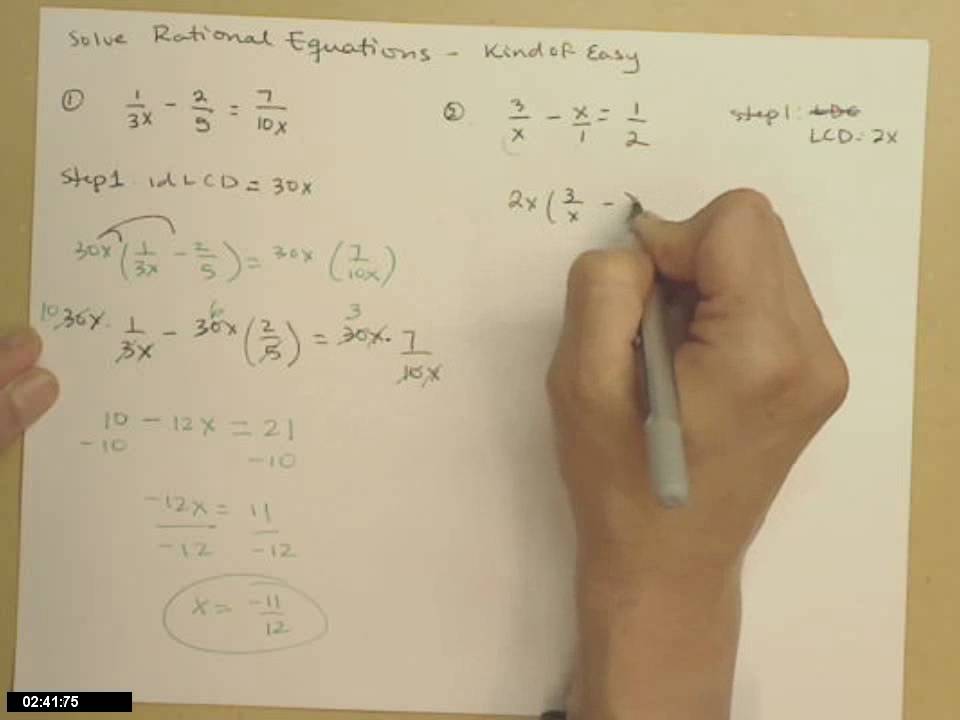 Solve Rational Equations - Kind of Easy
① 1/3x - 2/5 = 7/10x
Step1 id LCD = 30x
30x(1/3x - 2/5) = 30x (7/10x)
10 30x · 1/3x - 6 30x (2/5) = 3 30x · 7/10x
10 - 12x = 21
-10 -10
-12x = 11
-12 -12
x = -11/12
② 3/x - x/1 = 1/2
Step1: LDC
LCD: 2x
2x(3/x -
02:41:75